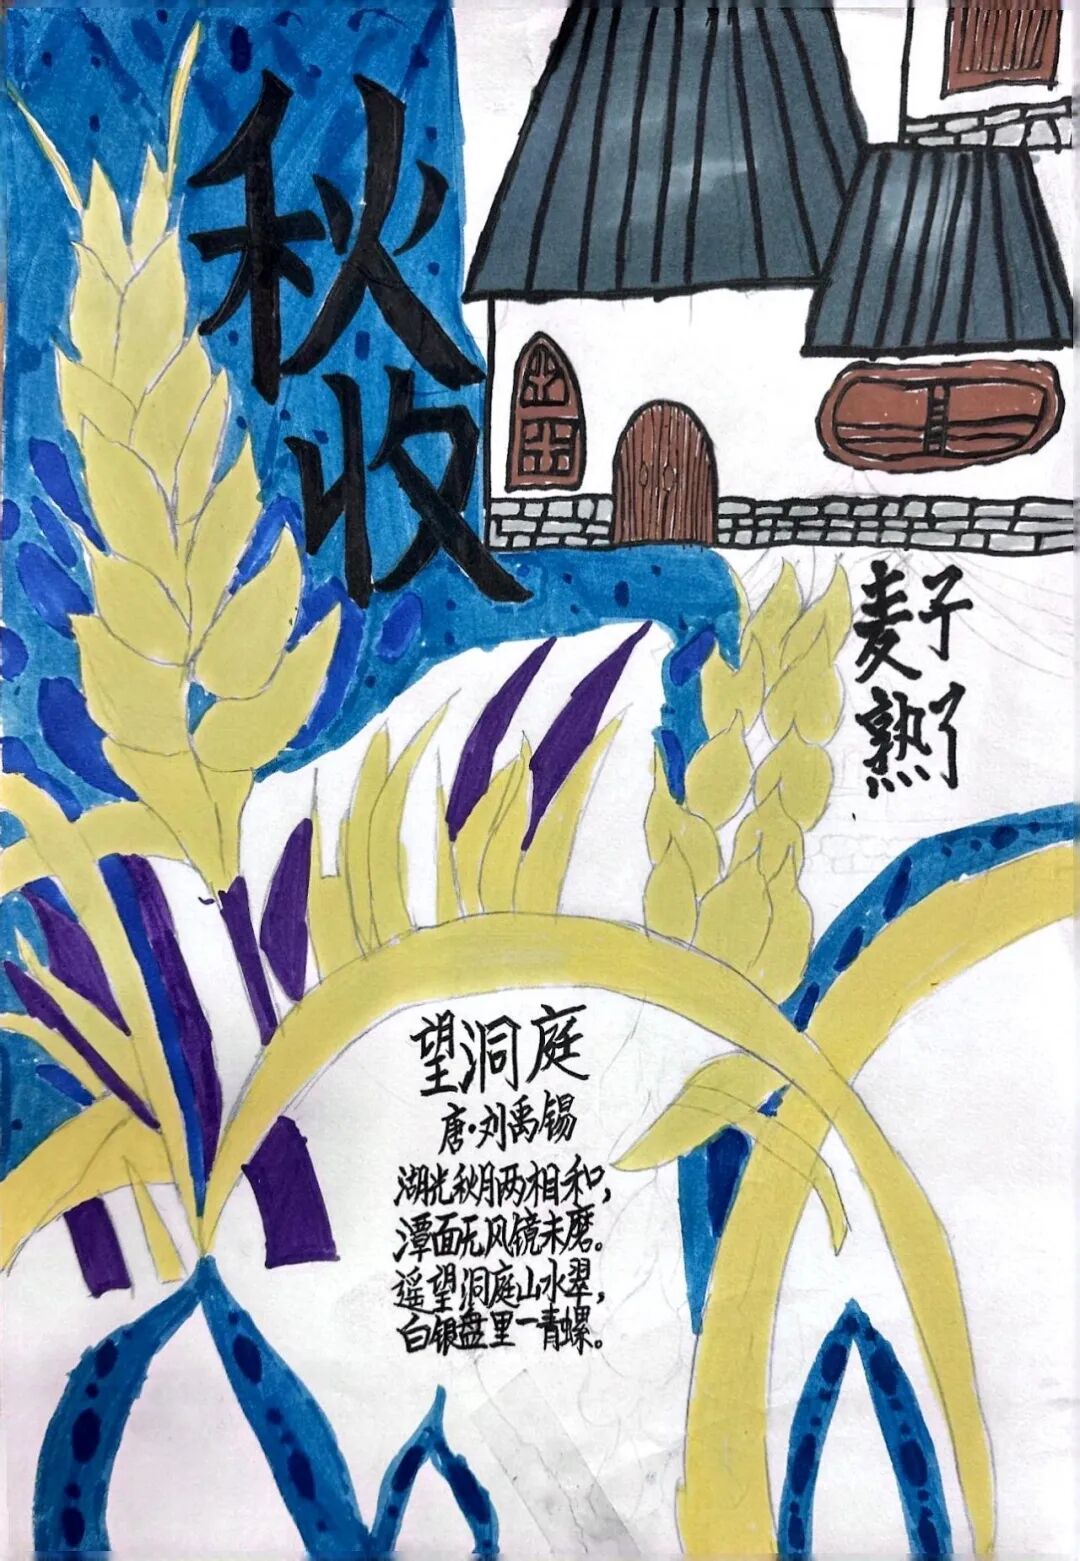 秋
收
麦子
熟了
望洞庭
唐·刘禹锡
湖光秋月两相和，
潭面无风镜未磨。
遥望洞庭山水翠，
白银盘里一青螺。